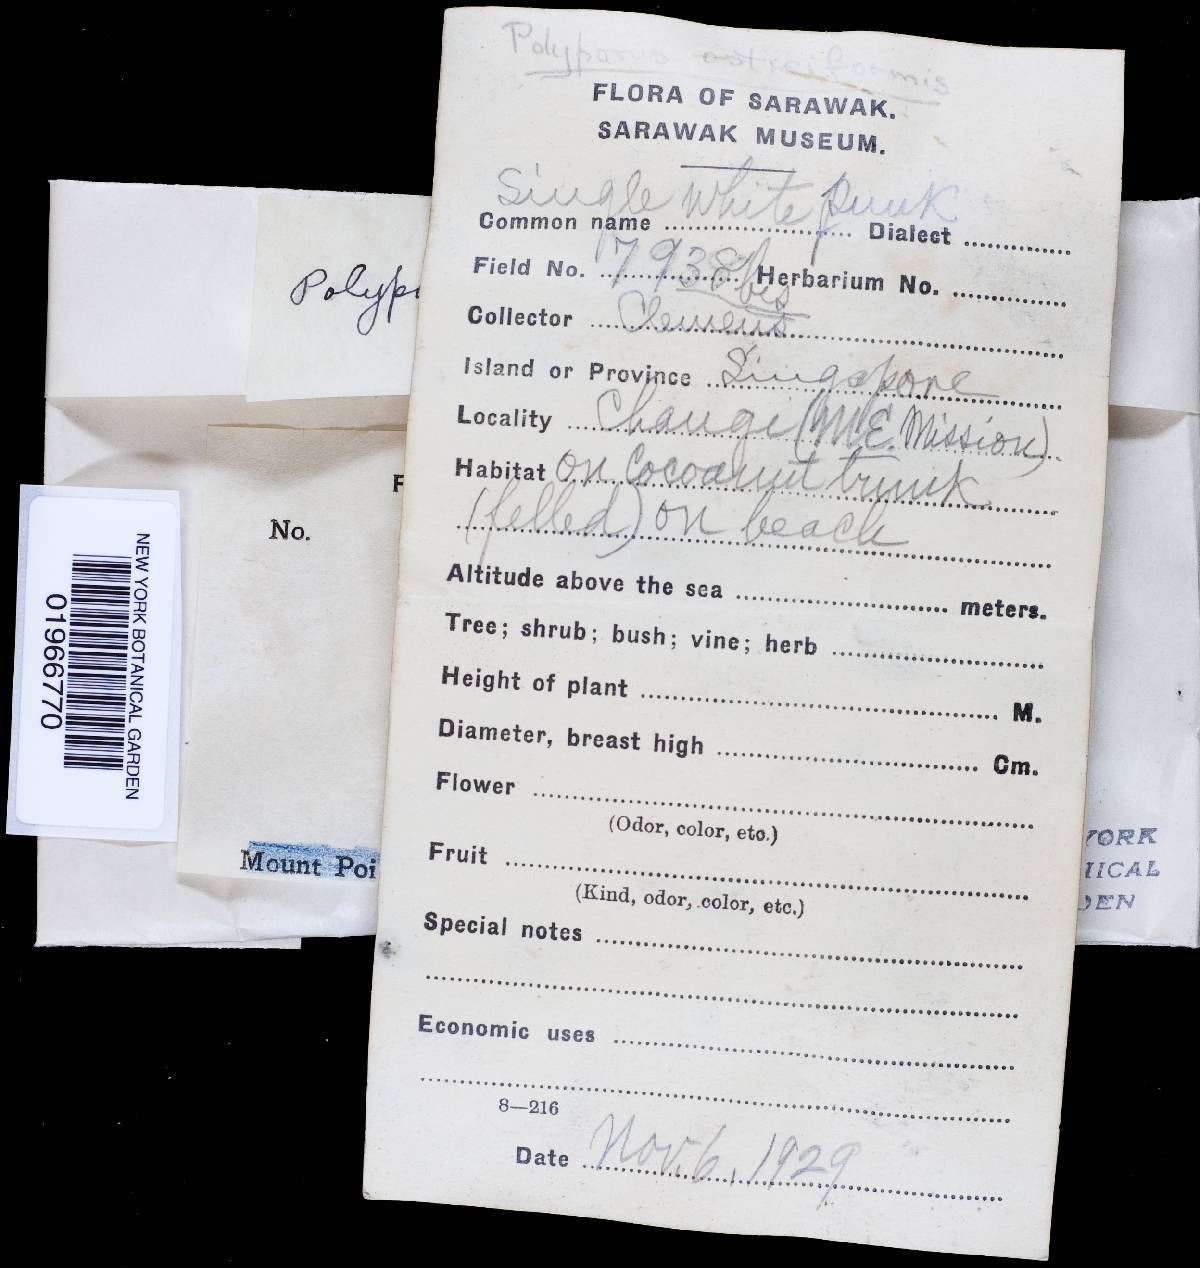 Polyporus ostreiformis
FLORA OF SARAWAK.
SARAWAK MUSEUM.
Single white punk
Common name .......... Dialect ..........
Field No. 7938 bis Herbarium No. ..........
Collector Clemens
Island or Province Singapore
Locality Changi (M.E. Mission)
Habitat on Cocoanut trunk
(felled) on beach
Altitude above the sea .......... meters.
Tree; shrub; bush; vine; herb ..........
Height of plant .......... M.
Diameter, breast high .......... Cm.
Flower ..........
(Odor, color, etc.)
Fruit ..........
(Kind, odor, color, etc.)
Special notes ..........
Economic uses ..........
8—216
Date Nov. 6, 1929
Polyp
F
No.
Mount Poi
NEW YORK BOTANICAL GARDEN
01966770
YORK
ICAL
DEN